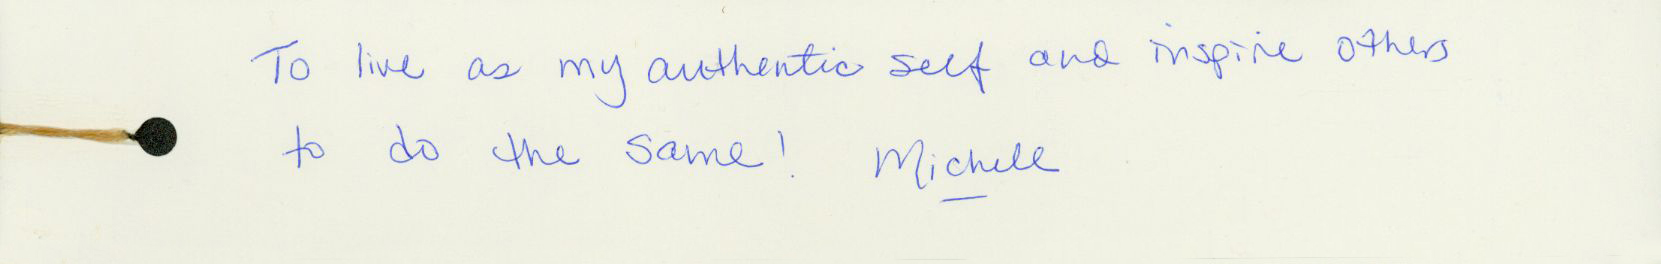 To live as my authentic self and inspire others
to do the same! Michelle